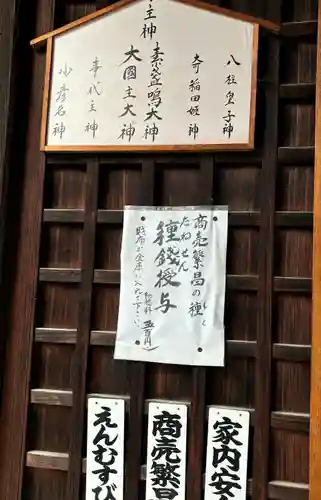 主神
八柱皇子神
奇稲田姫神
素盞鳴大神
大國主大神
事代主神
少彦名神
商売繁昌の種
たねせん
種銭授与
財布、金庫に入れて下さい
初穂料 五百円
えんむすび
商売繁
家内安